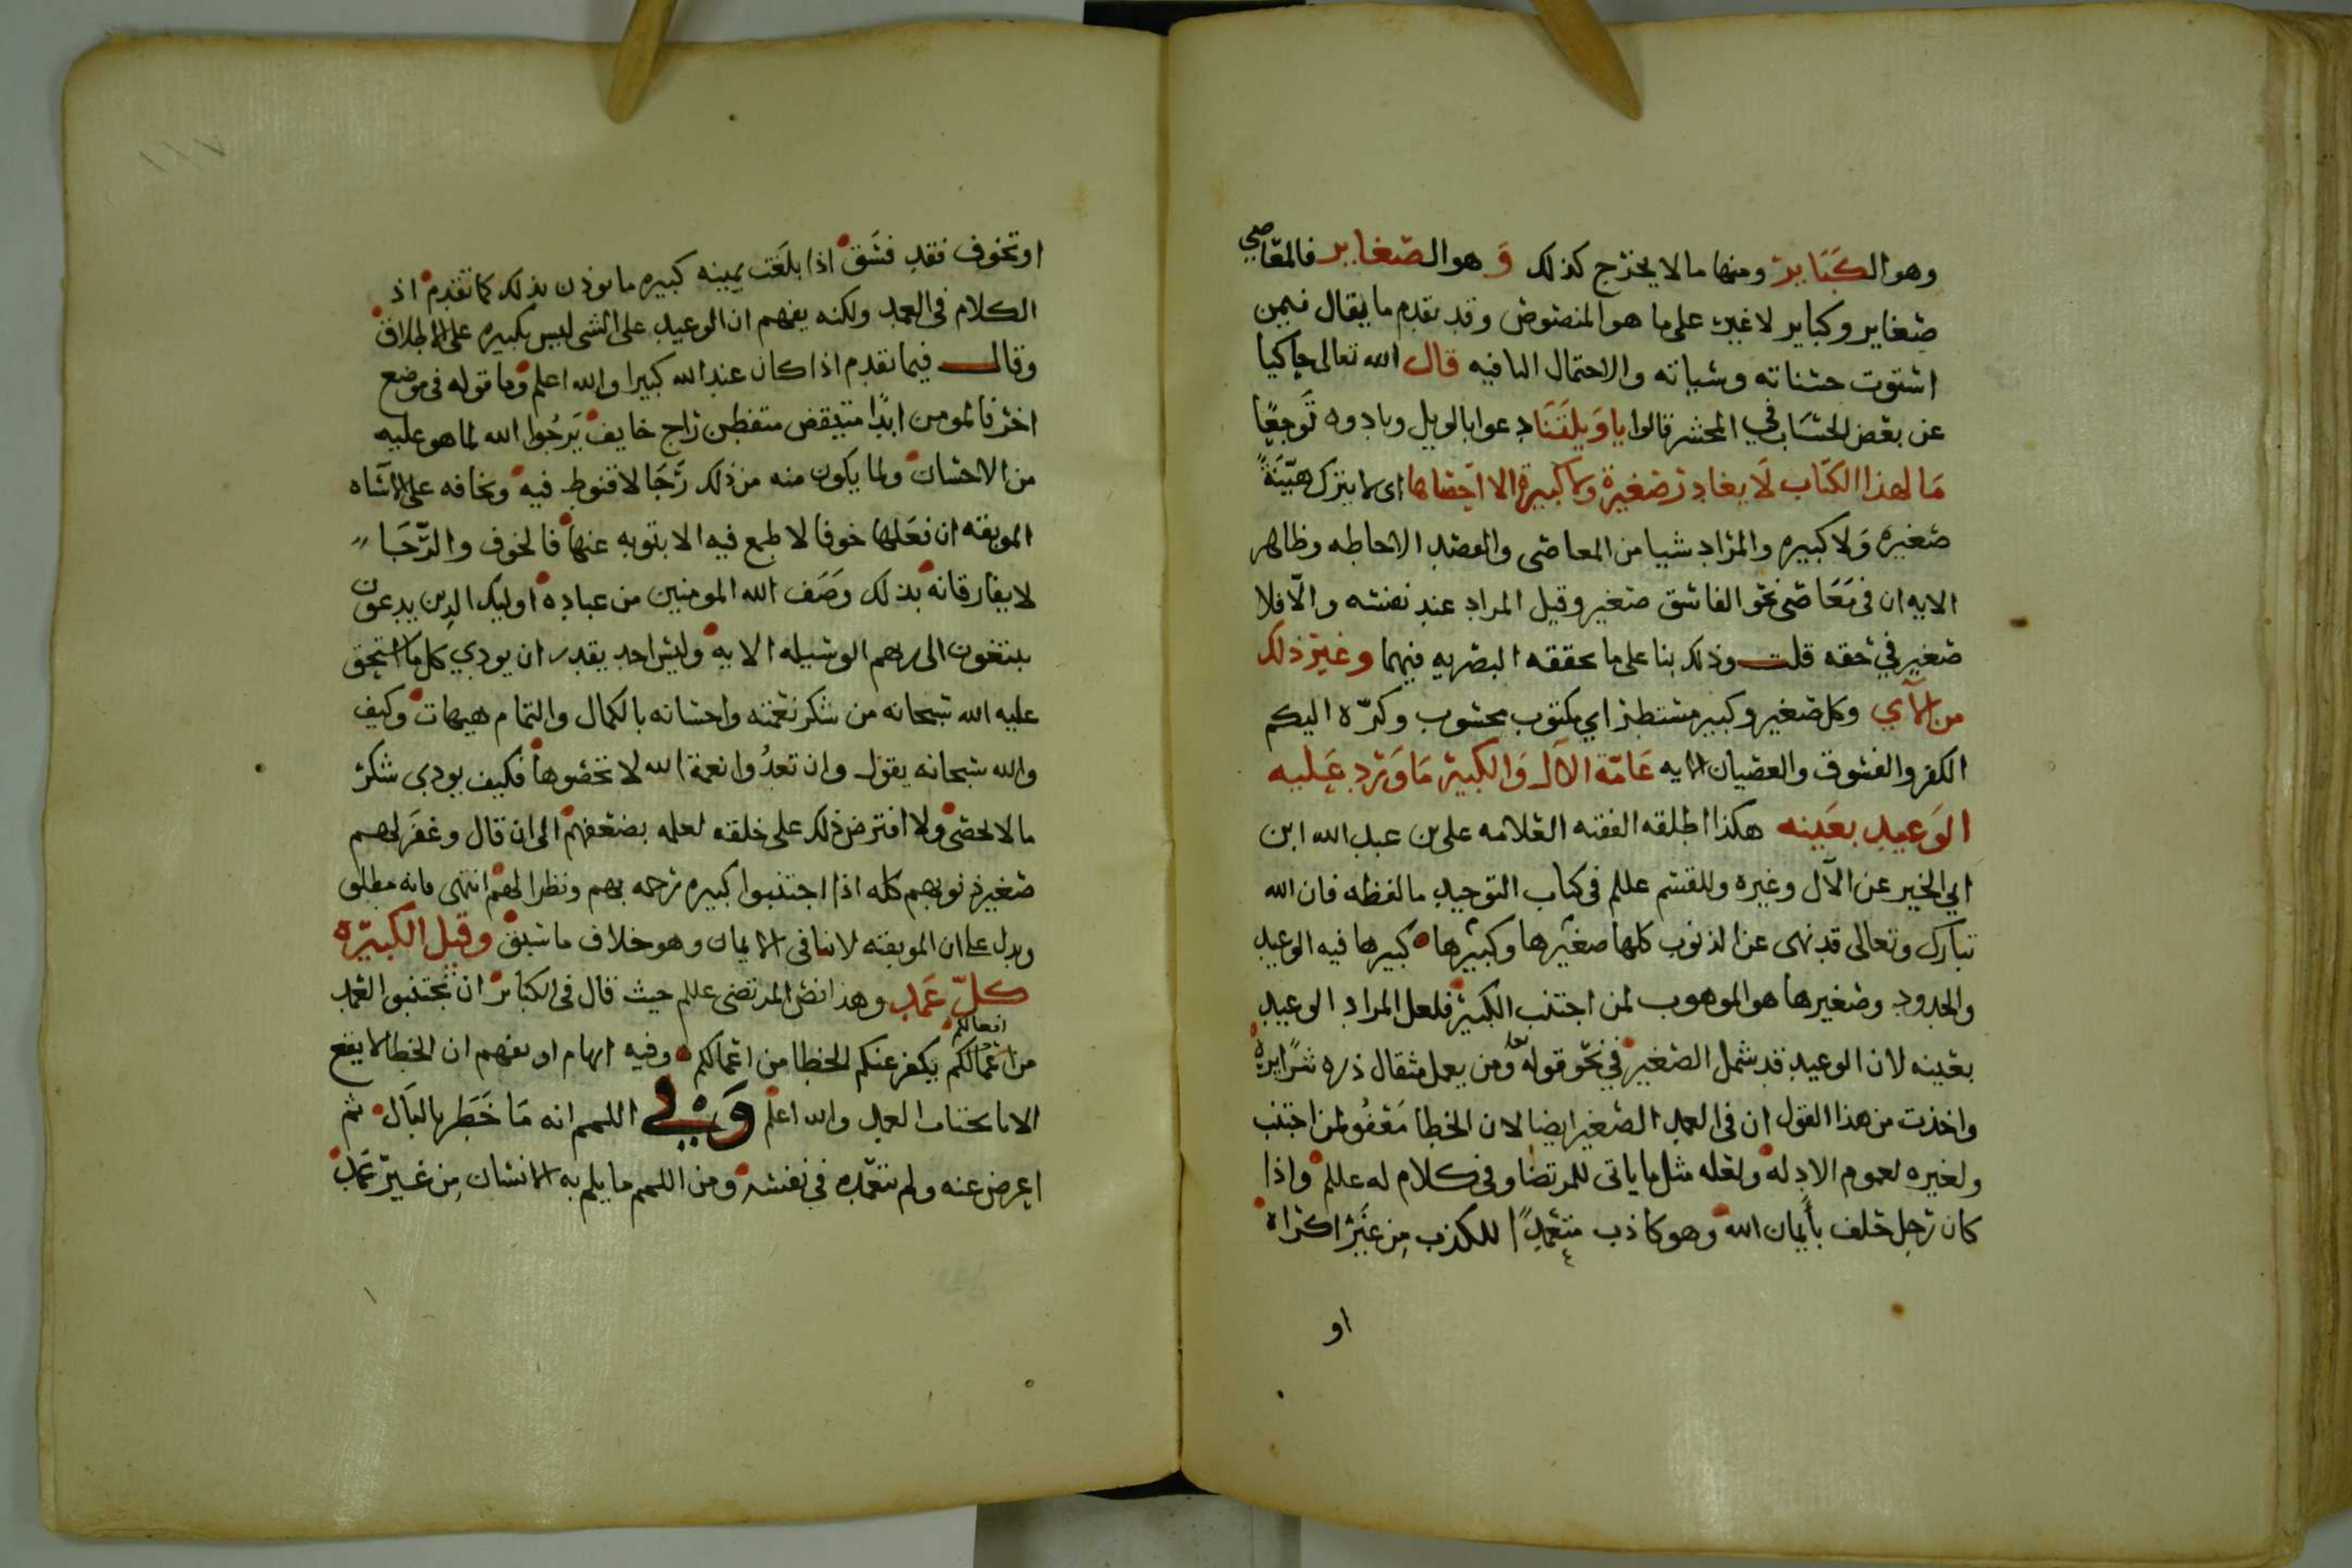 وهو الكبَاير ومنها ما لا يخرج كذلك وَ هو الصغاير فالمعاصي
صغاير وكباير لا غير على ما هو المنصوص وقد تقدم ما يقال فيمن
استوت حسناته وسياته والاحتمال النافيه قال الله تعالى حاكيا
عن بعض الحسَاب في المحشر قالوا يا وَيلَتَنَا دعوا بالويل ونادوه تَوجعًا
مَا لهذا الكتاب لَا يغادر صغيرة ولا كبيرة الا احصاها اى لا يترك هيّنَةً
صغيره وَلا كبيره والمراد شيا من المعاصى والقصد الاحاطه وظاهر
الايه ان فى مَعَاصى نحو الفاسق صغير وقيل المراد عند نفسه والّا فلا
صغير في حقه قلت وذلك بنا على ما حققه البصريه فيهما وغير ذلك
من الآي وكل صغير وكبير مستطر اي مكتوب محسوب وكرّه اليكم
الكفر والفسوق والعصيان الايه عَامّة الآل وَالكبيرة مَا وَرَد عَليه
الوَعيد بعَينه هكذا اطلقه الفقيه العلامه على بن عبد الله ابن
ابي الخير عن الآل وغيره وللقسم عللم فى كتاب التوحيد ما لفظه فان الله
تبارك وتعالى قد نهى عن الذنوب كلها صغيرها وكبيرها كبيرها فيه الوعيد
والحدود وصغيرها هو الموهوب لمن اجتنب الكبير فلعل المراد الوعيد
بعَينه لان الوعيد قد شمل الصغير في نحو قوله تعا ومن يعمل مثقال ذره شرًا يره
واخذت من هذا القول ان فى العمد الصغير ايضا لان الخطا مَعْفُو لمن اجتنب
ولغيره لعموم الادله ولعله مثل ما ياتى للمرتضا وفى كلام له عللم واذا
كان رجل حلف بأيمان الله وهو كاذب متعمدًا للكذب من غَير اكراه
او
او تخوف فقد فسَق اذا بلغت يمينه كبيره ما يوذن بذلك كما تقدم اذ
الكلام فى العمد ولكنه يفهم ان الوعيد على الشى ليس بكبيره على الاطلاق
وقال فيما تقدم اذا كان عند الله كبيرا والله اعلم وما قوله فى موضع
اخر فالمومن ابدًا متيقض متفطن راج خايف يَرجُوا الله لما هو عليه
من الاحسان ولما يكون منه من ذلك رَجَا لا قنوط فيه ويخافه على الاساه
الموبقه ان فعَلها خوفا لا طمع فيه الا بتوبه عنها فالخوف والرّجَا
لا يفارقانه بذلك وَصَف الله المومنين من عباده اوليك الذين يدعون
يبتغون الى ربهم الوسيله الايه وليس احد يقدر ان يودي كل ما استحق
عليه الله سبحانه من شكر نعمته واحسانه بالكمال والتمام هيهات وكيف
والله سبحانه يقول وان تعدُوا نعمة الله لا تحصوها فكيف يودي شكر
ما لا يحصى ولا افترض ذلك على خلقه لعلمه بضعفهم الى ان قال وغفَر لهم
صغير ذنوبهم كله اذا اجتنبوا كبيره رحمه بهم ونظرا لهم انتهى فانه مطلق
ويدل على ان الموبقه لا تنافى الايمان وهو خلاف ما سبق وقيل الكبيرَه
كلّ عَمد وهذا نص المرتضى عللم حيث قال فى الكبَاير ان تجتنبوا العمد
من اعمالكم افعالكم يكفر عنكم الخطا من اعمالكم وفيه ايهام او يفهم ان الخطا لا يقع
الا باجتناب العمد والله اعلم وَفي اللمم انه مَا خَطَر بالبَال ثم
اعرض عنه ولم يتعمده في نفسه ومن اللمم ما يلم به الانسان مِن غير عَمد